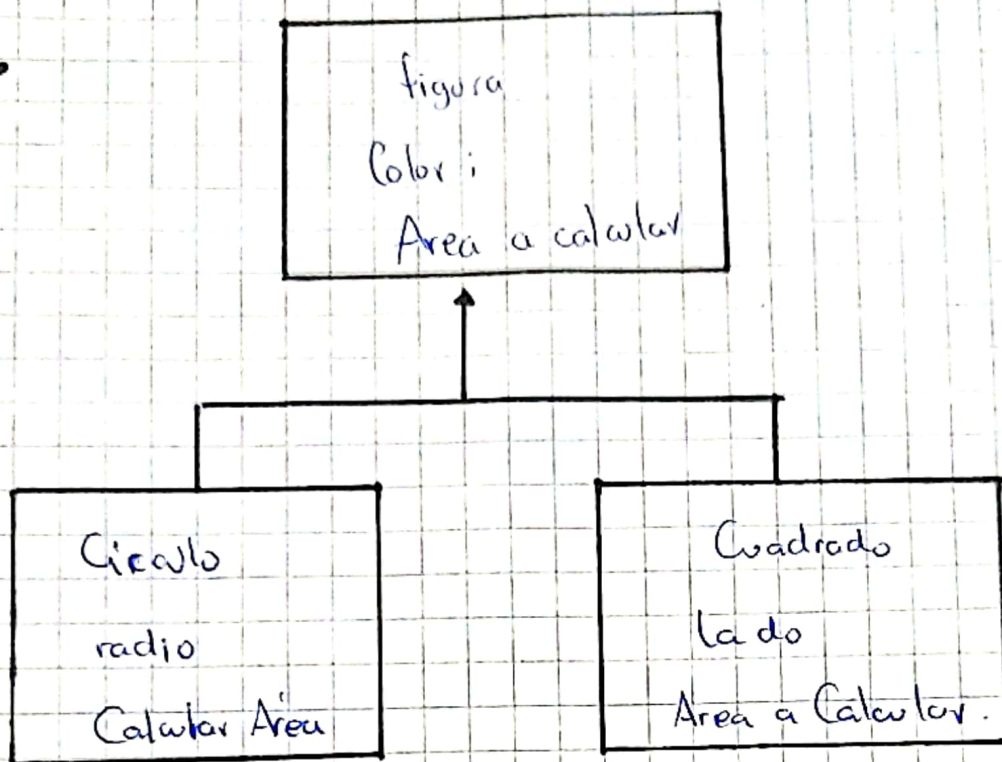 figura
Color :
Area a calcular
Circulo
radio
Calcular Área
Cuadrado
lado
Area a Calcular.